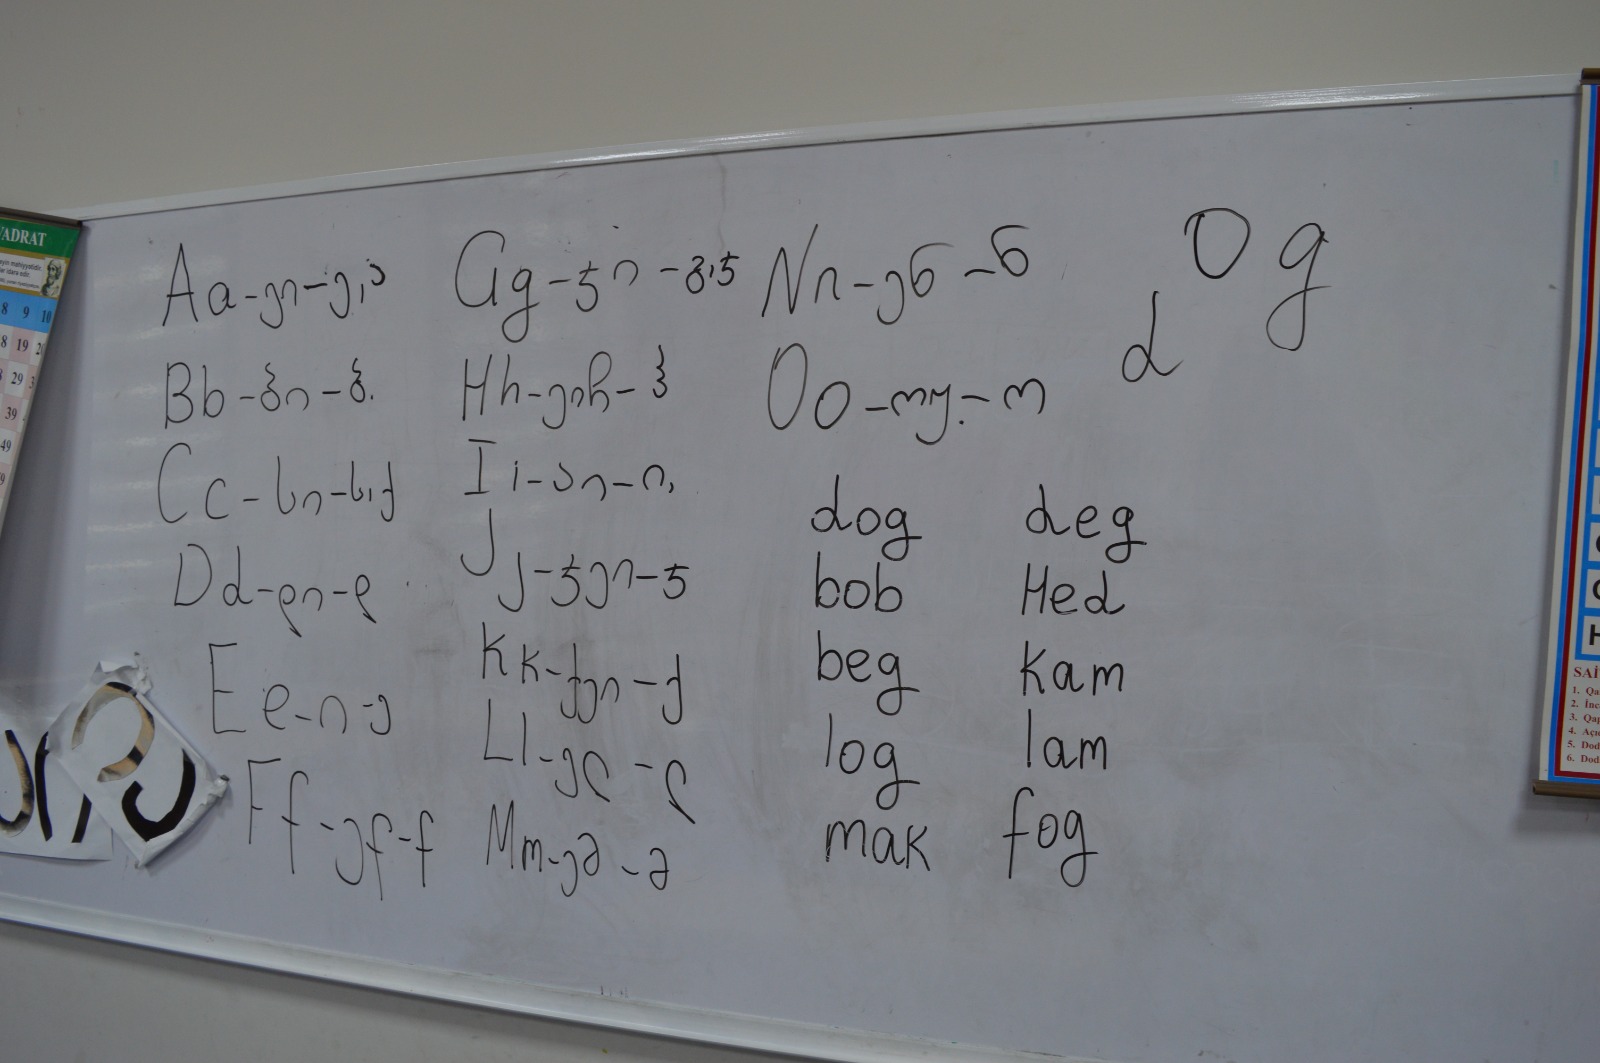 Aa-ეი-ე,ა
Bb-ბი-ბ.
Cc-სი-ს,კ
Dd-დი-დ
Ee-ი-ე
Ff-ეf-f
Gg-ჯი-გ,ჯ
Hh-ეიჩ-ჰ
Ii-აი-ი,
Jj-ჯეი-ჯ
Kk-ქეი-ქ
Ll-ელ-ლ
Mm-ემ-მ
Nn-ენ-ნ
Oo-ოუ.-ო
O g
d
dog deg
bob Hed
beg kam
log lam
mak fog
VADRAT
8 9 10
8 19
29
39
49
SAİ
1. Qa
2. İnc
3. Qap
4. Açı
5. Dod
6. Dod